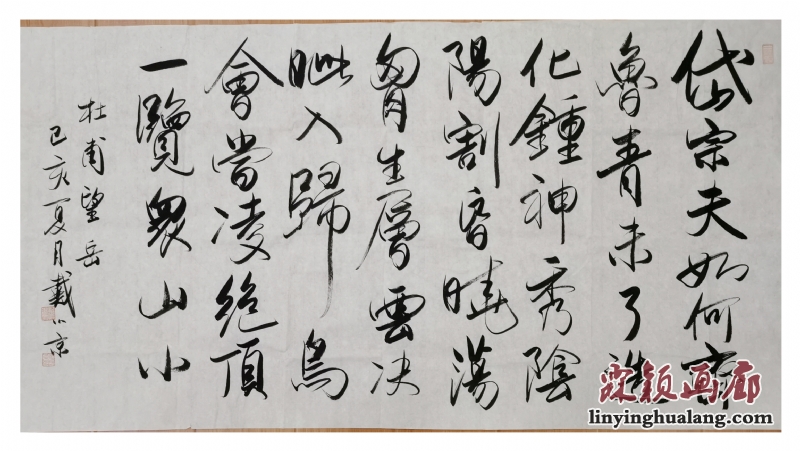 岱宗夫如何齊
魯青未了造
化鍾神秀陰
陽割昏曉蕩
胷生層雲决
眦入歸鳥
會當凌絕頂
一覽衆山小
杜甫望岳
己亥夏月戴小京
霖颖画廊
linyinghualang.com